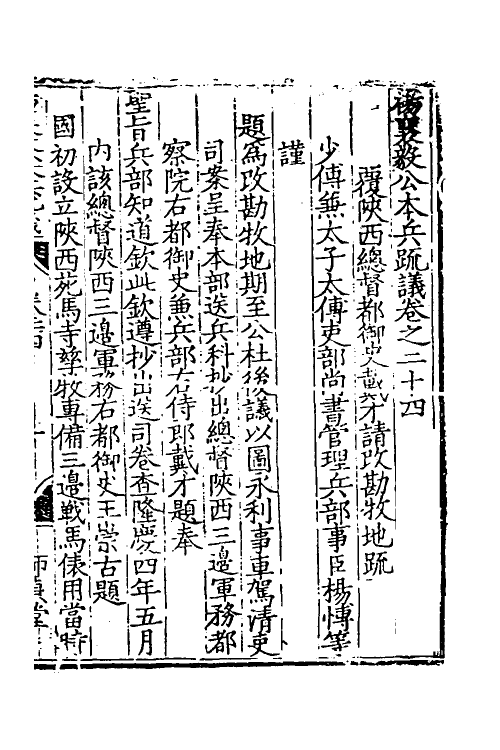 楊襄毅公本兵疏議卷之二十四
覆陝西總督都御史戴才請改勘牧地疏
少傅兼太子太傅吏部尚書管理兵部事臣楊博等
謹
題為改勘牧地期至公杜後議以圖永利事車駕清吏
司案呈奉本部送兵科抄出總督陝西三邊軍務都
察院右都御史兼兵部右侍郎戴才題奉
聖旨兵部知道欽此欽遵抄出送司卷查隆慶四年五月
內該總督陝西三邊軍務右都御史王崇古題
國初設立陝西苑馬寺孳牧專備三邊戰馬俵用當時